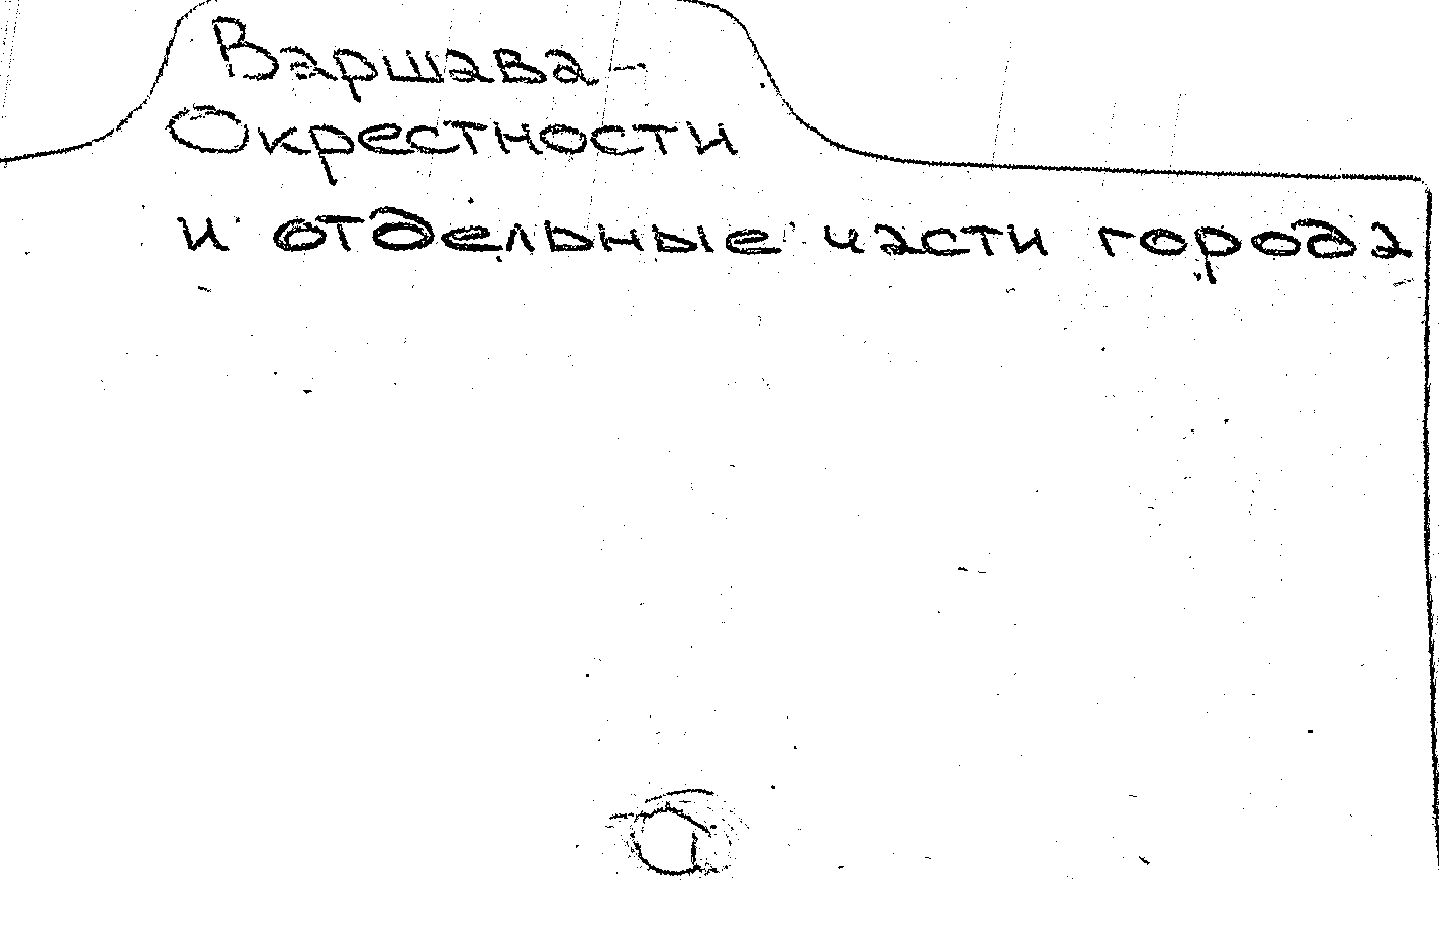 Варшава-
Окрестности
и отдельные части города